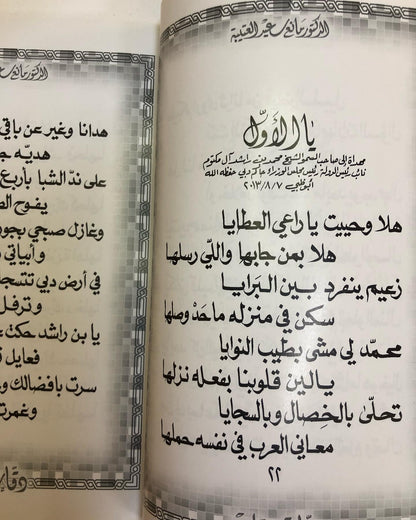 الدكتور مانع سعيد العتيبة
يا الأوّل
مهداة إلى صاحب السمو الشيخ محمد بن راشد آل مكتوم
نائب رئيس الدولة رئيس مجلس الوزراء حاكم دبي حفظه الله
أبوظبي ٢٠١٣/٨/٧
هلا وحييت يا راعي العطايا
هلا بمن جابها واللي رسلها
زعيم ينفرد بين البَرايا
سكن في منزله ما حَدْ وصلها
محمّد لي مشى بطيب النوايا
يا لين قلوبنا بفعله نزلها
تحلّى بالخِصال وبالسجايا
معاني العرب في نفسه حملها
٢٢
الدكتور مانع سعيد
هدانا وغير عن باقي
هديّه
على ندّ الشبا بأربع
يفوح
وغازل صبحي بجور
وأبياتي
في أرض دبي تتبجا
وترفل
يا بن راشد حكت
فعايل
سرت بافضالك و
وغمرت